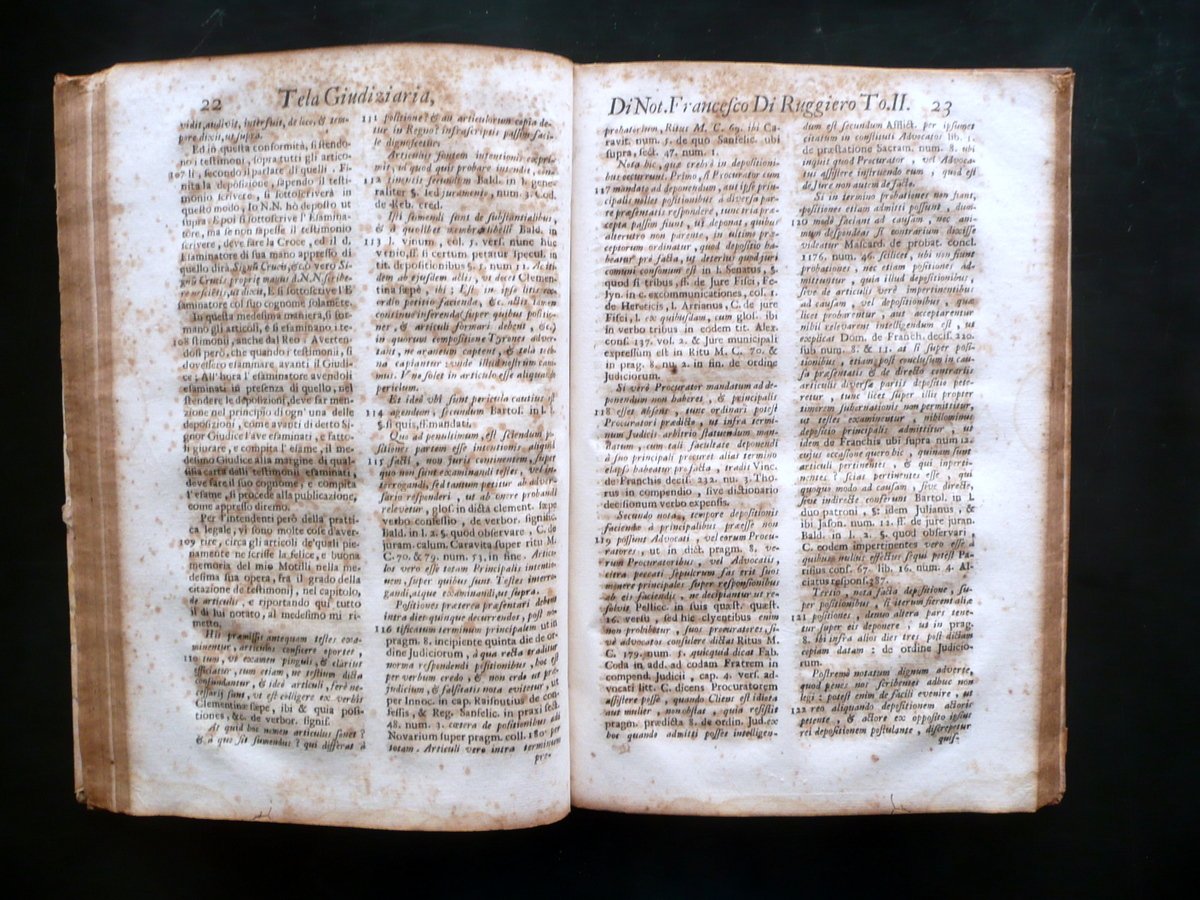 22 Tela Giudiziaria,
vidit, audivit, interfuit, de loco, & tem-
pore dixit, ut supra.
Ed in questa conformità, si stendo-
no i testimoni, sopra tutti gli artico-
107 li, secondo il parlare di quelli. Fi-
nita la deposizione, sapendo il testi-
monio scrivere, si sottoscriverà in
questo modo, Io N.N. hò deposto ut
supra; E poi si sottoscrive l'Esamina-
tore, ma se non sapesse il testimonio
scrivere, deve fare la Croce, ed il d.
Esaminatore di sua mano appresso di
quello dirà, Signū Crucis, &c. ò vero Si-
gnū Crucis propriæ manus d. N.N. scribe-
re nescientis, ut dixit, E si sottoscrive l'E-
saminatore col suo cognome solamēte.
In questa medesima maniera, si for-
mano gli articoli, e si esaminano i te-
108 stimonii, anche dal Reo. Averten-
dosi però, che quando i testimonii, si
dovessero esaminare avanti il Giudi-
ce; All'hora l'esaminatore avendoli
esaminati in presenza di quello, nel
stendere le deposizioni, deve far men-
zione nel principio di ogn'una delle
deposizioni, come avanti di detto Si-
gnor Giudice l'ave esaminati, e fatto-
li giurare, e compita l'esame, il me-
desimo Giudice alla margine di qual-
sisia carta delli testimonii esaminati,
deve fare il suo cognome, e compita
l'esame, si procede alla publicazione,
come appresso diremo.
Per l'intendenti però della pratti-
ca legale, vi sono molte cose d'aver-
109 tire, circa gli articoli de'quali pie-
namente ne scrisse la felice, e buona
memoria del mio Motilli nella me-
desima sua opera, fra il grado della
citazione de testimonj, nel capitolo,
de articuli, e riportando qui tutto
il di lui notato, al medesimo mi ri-
metto,
His præmissis antequam testes exa-
minentur, articulos conficere oportet,
110 tum, ut examen pinguis, & clarius
efficiatur, tum etiam, ne testium dicta
confundantur, & ideo articuli, ferè ne-
cessarii sunt, ut est colligere ex verbis
Clementinæ sæpe, ibi & quia posi-
tiones, &c. de verbor. signif.
At quid hoc nomen articulus sonet?
& à quo sit sumendus? qui differat à
111 positione? & an articulorum copia de-
tur in Regno? infrascriptis passim faci-
lè dignoscetur.
Articulus siquidem intentionis expri-
mit, id quod quis probare intendit, eius
112 intimentis secundum Bald. in l. gene-
raliter §. sed juramento, num. 3. Cod.
de Reb. cred.
Isti sumendi sunt de substantialibus,
& à quolibet membro libelli Bald. in
113 l. vinum, col. 5. vers. nunc hic
venio, ff. si certum. petatur Specul. in
tit. de positionibus §. 5. num 51. Actitā-
dum ab ejusdem actis, ut docet Clemen-
tina sæpe, ibi; Est, in ipso litis ex-
ordio petitio facienda, &c. actis tamen
continue inserenda, super quibus positio-
nes, & articuli formari debent, &c.)
in quorum compositione Tyrones adver-
tant, ne araneam captent, & tela tech-
na capiantur &c.
Vna solet in articulo esse aliqualis
periculum.
Et ideo ubi sunt pericula cautius est
114 agendum, secundum Bartol. in l. 1.
§. si quis, ff. mandati.
Quo ad penultimum, est sciendum po-
sitiones partem esse intentionis aliquid
115 facti, non Juris continentem, super
quo non sunt examinandi testes, vel in-
terrogandi, sed tantum petitur ab adver-
sario responderi, ut ab onere probandi
relevetur, glos. in dicta clement. sæpe
verbo confessio, de verbor. signific.
Bald. in l. 2. §. quod observare, C. de
juram. calum. Caravita super ritu M.
C. 70. & 79. num. 53. in fine. Articu-
los vero esse totam Principalis intentio-
nem, super quibus sunt Testes interro-
gandi, atque examinandi, ut supra.
Positiones præterea præsentari debent
intra dies quinque decurrendos, post no-
116 tificatum terminum principalem ut in
pragm. 8. incipiente quinta die de or-
dine Judiciorum, à qua recta traditur
norma respondendi positionibus, hoc est
per verbum credo, & non credo ut præ-
judicium, & falsitatis nota evitetur, ut
per Innoc. in cap. Raisnutius de con-
fessis, & Reg. Sanfelic. in praxi sect.
48. num. 3. cætera de positionibus adi
Novarium super pragm. coll. 180. per
totam. Articuli vero intra terminum
pro-
Di Not. Francesco Di Ruggiero To. II. 23
probatorium, Ritus M. C. 69. ibi Ca-
ravit. num. 5. de quo Sanfelic. ubi
supra, sect. 47. num. 1.
Nota hic, quæ crebrò in depositioni-
bus occurrunt. Primo, si Procurator cum
117 mandato ad deponendum, aut ipse prin-
cipalis nolles positionibus à diversa par-
te præsentatis respondere, tunc iria præ-
cepta passim fiunt, ut deponat, quibus
alterutro non parente, in ultimo præ-
ceptorum ordinatur, quod depositio ha-
beatur pro facta, ut deterius quod juri
comuni consonum est in l. Senatus, §.
quod si tribus, ff. de Jure Fisci, Fe-
lyn. in c. excommunicationes, col. 1.
de Hereticis, l. Arrianus, C. de jure
Fisci, l. ex quibusdam, cum glos. ibi
in verbo tribus in eodem tit. Alex.
cons. 137. vol. 2. & Jure municipali
expressum est in Ritu M. C. 70. &
in prag. 8. nu. 2. in fin. de ordine
Judiciorum.
Si verò Procurator mandatum ad de-
ponendum non haberet, & principalis
118 esset absens, tunc ordinari potest
Procuratori prædicto, ut infra termi-
num Judicis arbitrio statuendum man-
datum, cum tali facultate deponendi
à suo principali procuret alias termino
elapso habeatur pro facta, tradit Vinc.
de Franchis decis. 232. nu. 3. Tho-
rus in compendio, sive dictionario
decisionum verbo expensis.
Secundo nota, tempore depositionis
faciendæ à principalibus præesse non
119 possunt Advocati, vel eorum Procu-
ratores, ut in dict. pragm. 8. ve-
rum Procuratoribus, vel Advocatis,
citra peccati sepulcrum fas erit suos
monere principales super responsionibus
ab eis faciendis, ne decipiantur ut re-
solvit Pellicc. in suis quæst. quæst.
16. versu, sed hic clyentibus enim
non prohibetur, suos procuratores, si-
vè advocatos consulere dictat Ritus M.
C. 179. num. 5. quicquid dicat Fab.
Coda in add. ad eodam Fratrem in
compend. Judicii, cap. 4. vers. ad-
vocati litt. C. dicens Procuratorem
assistere posse, quando Cliens est idiota
aut mulier, non obstat, quia resistit
pragm. prædicta 8. de ordin. Jud. ex
hoc quando admitti posset intelligen-
dum est secundum Afflict. per ipsumet
citatum in constituti Advocatos lib. 1.
de præstatione Sacram. num. 8. ubi
inquit quod Procurator, vel Advoca-
tus assistere instruendo eum, quod est
de Jure non autem de facto.
Si in termino probationes non fiant,
positiones etiam admitti possunt, dum-
120 modo faciant ad causam, nec ani-
mum despondeas si contrarium dixisse
videatur Mascard. de probat. concl.
1176. num. 46. scilicet, ubi non sunt
probationes, nec etiam positiones ad-
mittuntur, quia illud depositionibus,
sive de articulis verè impertinentibus
ad causam, vel depositionibus, quæ
licet probarentur, aut acceptarentur
nihil relevarent intelligendum est, ut
explicat Dom. de Franch. decis. 220.
sub num. 8. & 11. at si super posi-
tionibus, etiam post conclusum in cau-
sa præsentatis & de directo contrariis
articulis diversæ partis depositio pete-
retur, tunc licet super illis propter
timorem subornationis non permittitur,
ut testes examinentur, nihilominus
depositio principalis admittitur, ut
idem de Franchis ubi supra num 12.
cujus occasione quero hic, quinam sunt
articuli pertinentes, & qui inperti-
nentes? scias pertinentes esse, qui
quoquo modo ad causam, sive directè,
sive indirecte conferunt Bartol. in l.
duo patroni, §: idem Julianus, &
ibi Jason. num. 12. ff. de jure juran.
Bald. in l. 2. §. quod observari,
C. eodem impertinentes vero esse,
quibus nullus effectus sequi potest Pa-
risius cons. 67. lib. 16. num. 4. Al-
ciatus respons. 287.
Tertio, nota facta depositione, su-
per positionibus, si iterum fierent aliæ
121 positiones, denuo altera pars tene-
tur super eis deponere, ut in prag.
8. ibi infra alios dies tres post dictam
copiam datam: de ordine Judicio-
rum.
Postremò notatum dignum adverte,
quod penes nos scribentes adhuc non
legi: potest enim de facili evenire, ut
122 reo aliquando depositionem actoris
petente, & actore ex opposito ipsius
rei depositionem postulante, discrepetur
quis-